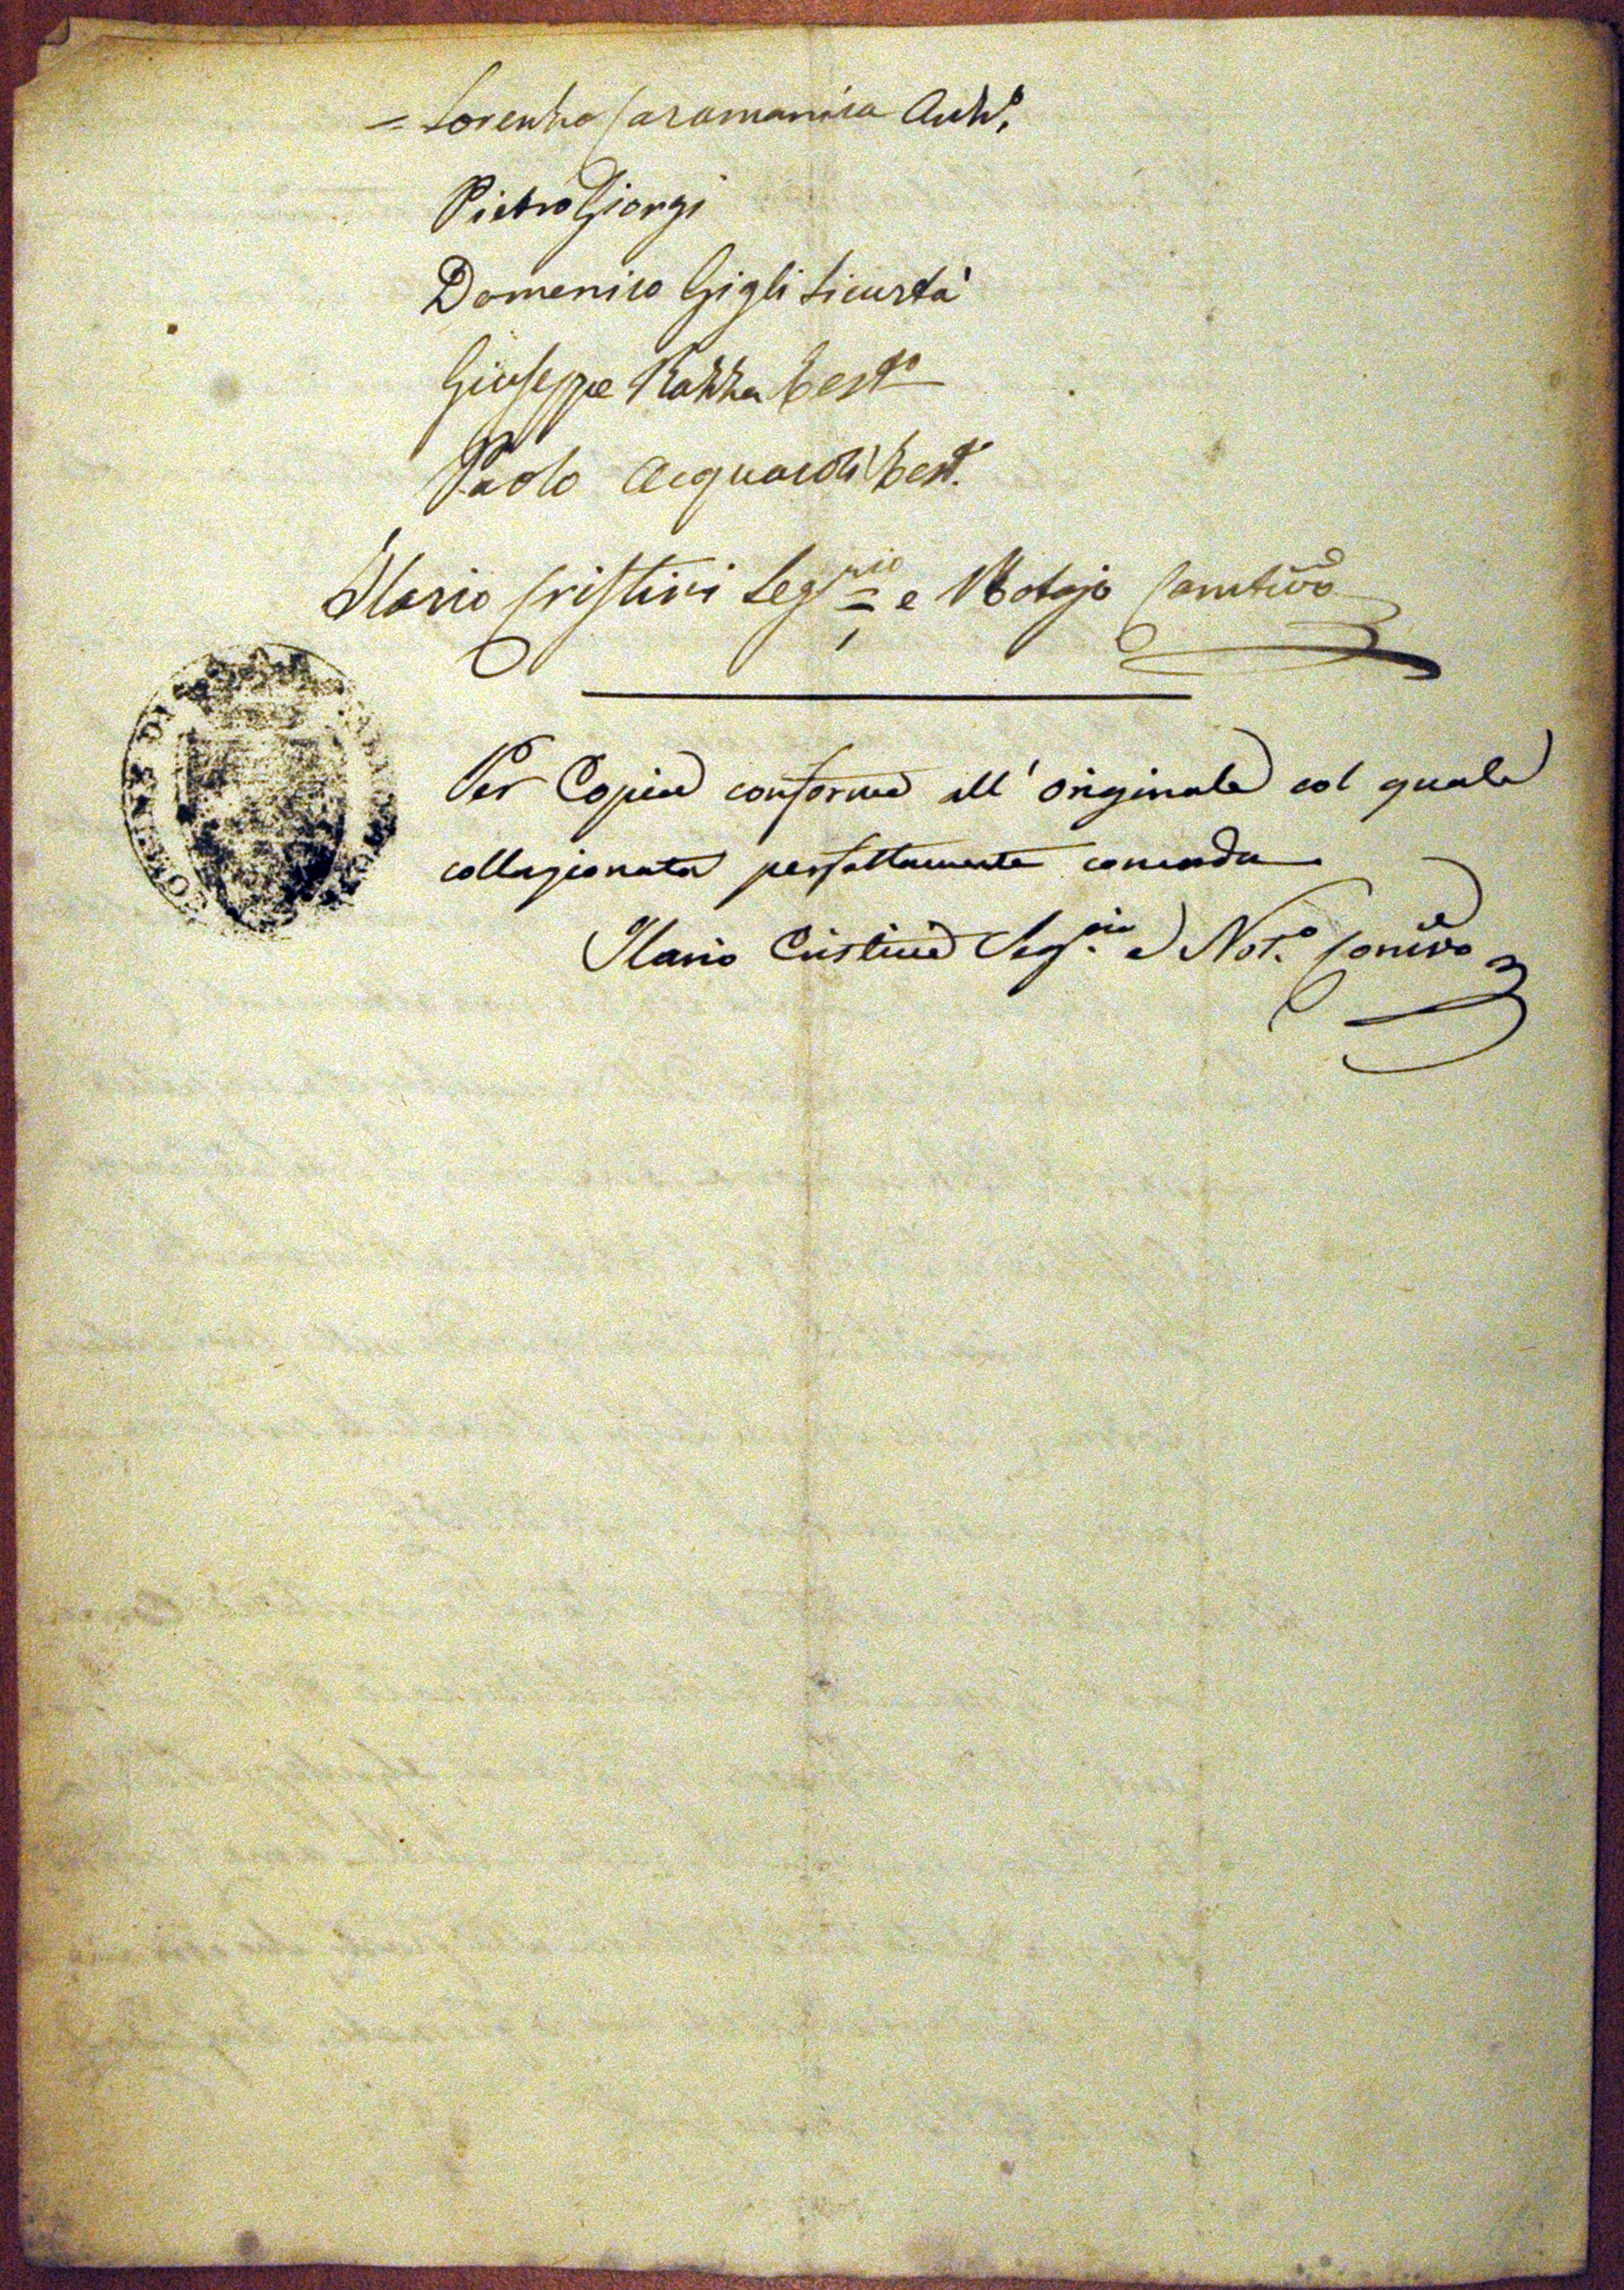 = Lorenzo Caramanica Anz.º
Pietro Giorgi
Domenico Gigli Sicurtà
Giuseppe Razza Test.º
Paolo Test.º
Ilario Cristini Seg.rio e Notajo
COMUNE DI
Per Copia conforme all' originale col quale
collazionata perfettamente concorda
Ilario Cristini Seg.rio e Not.º